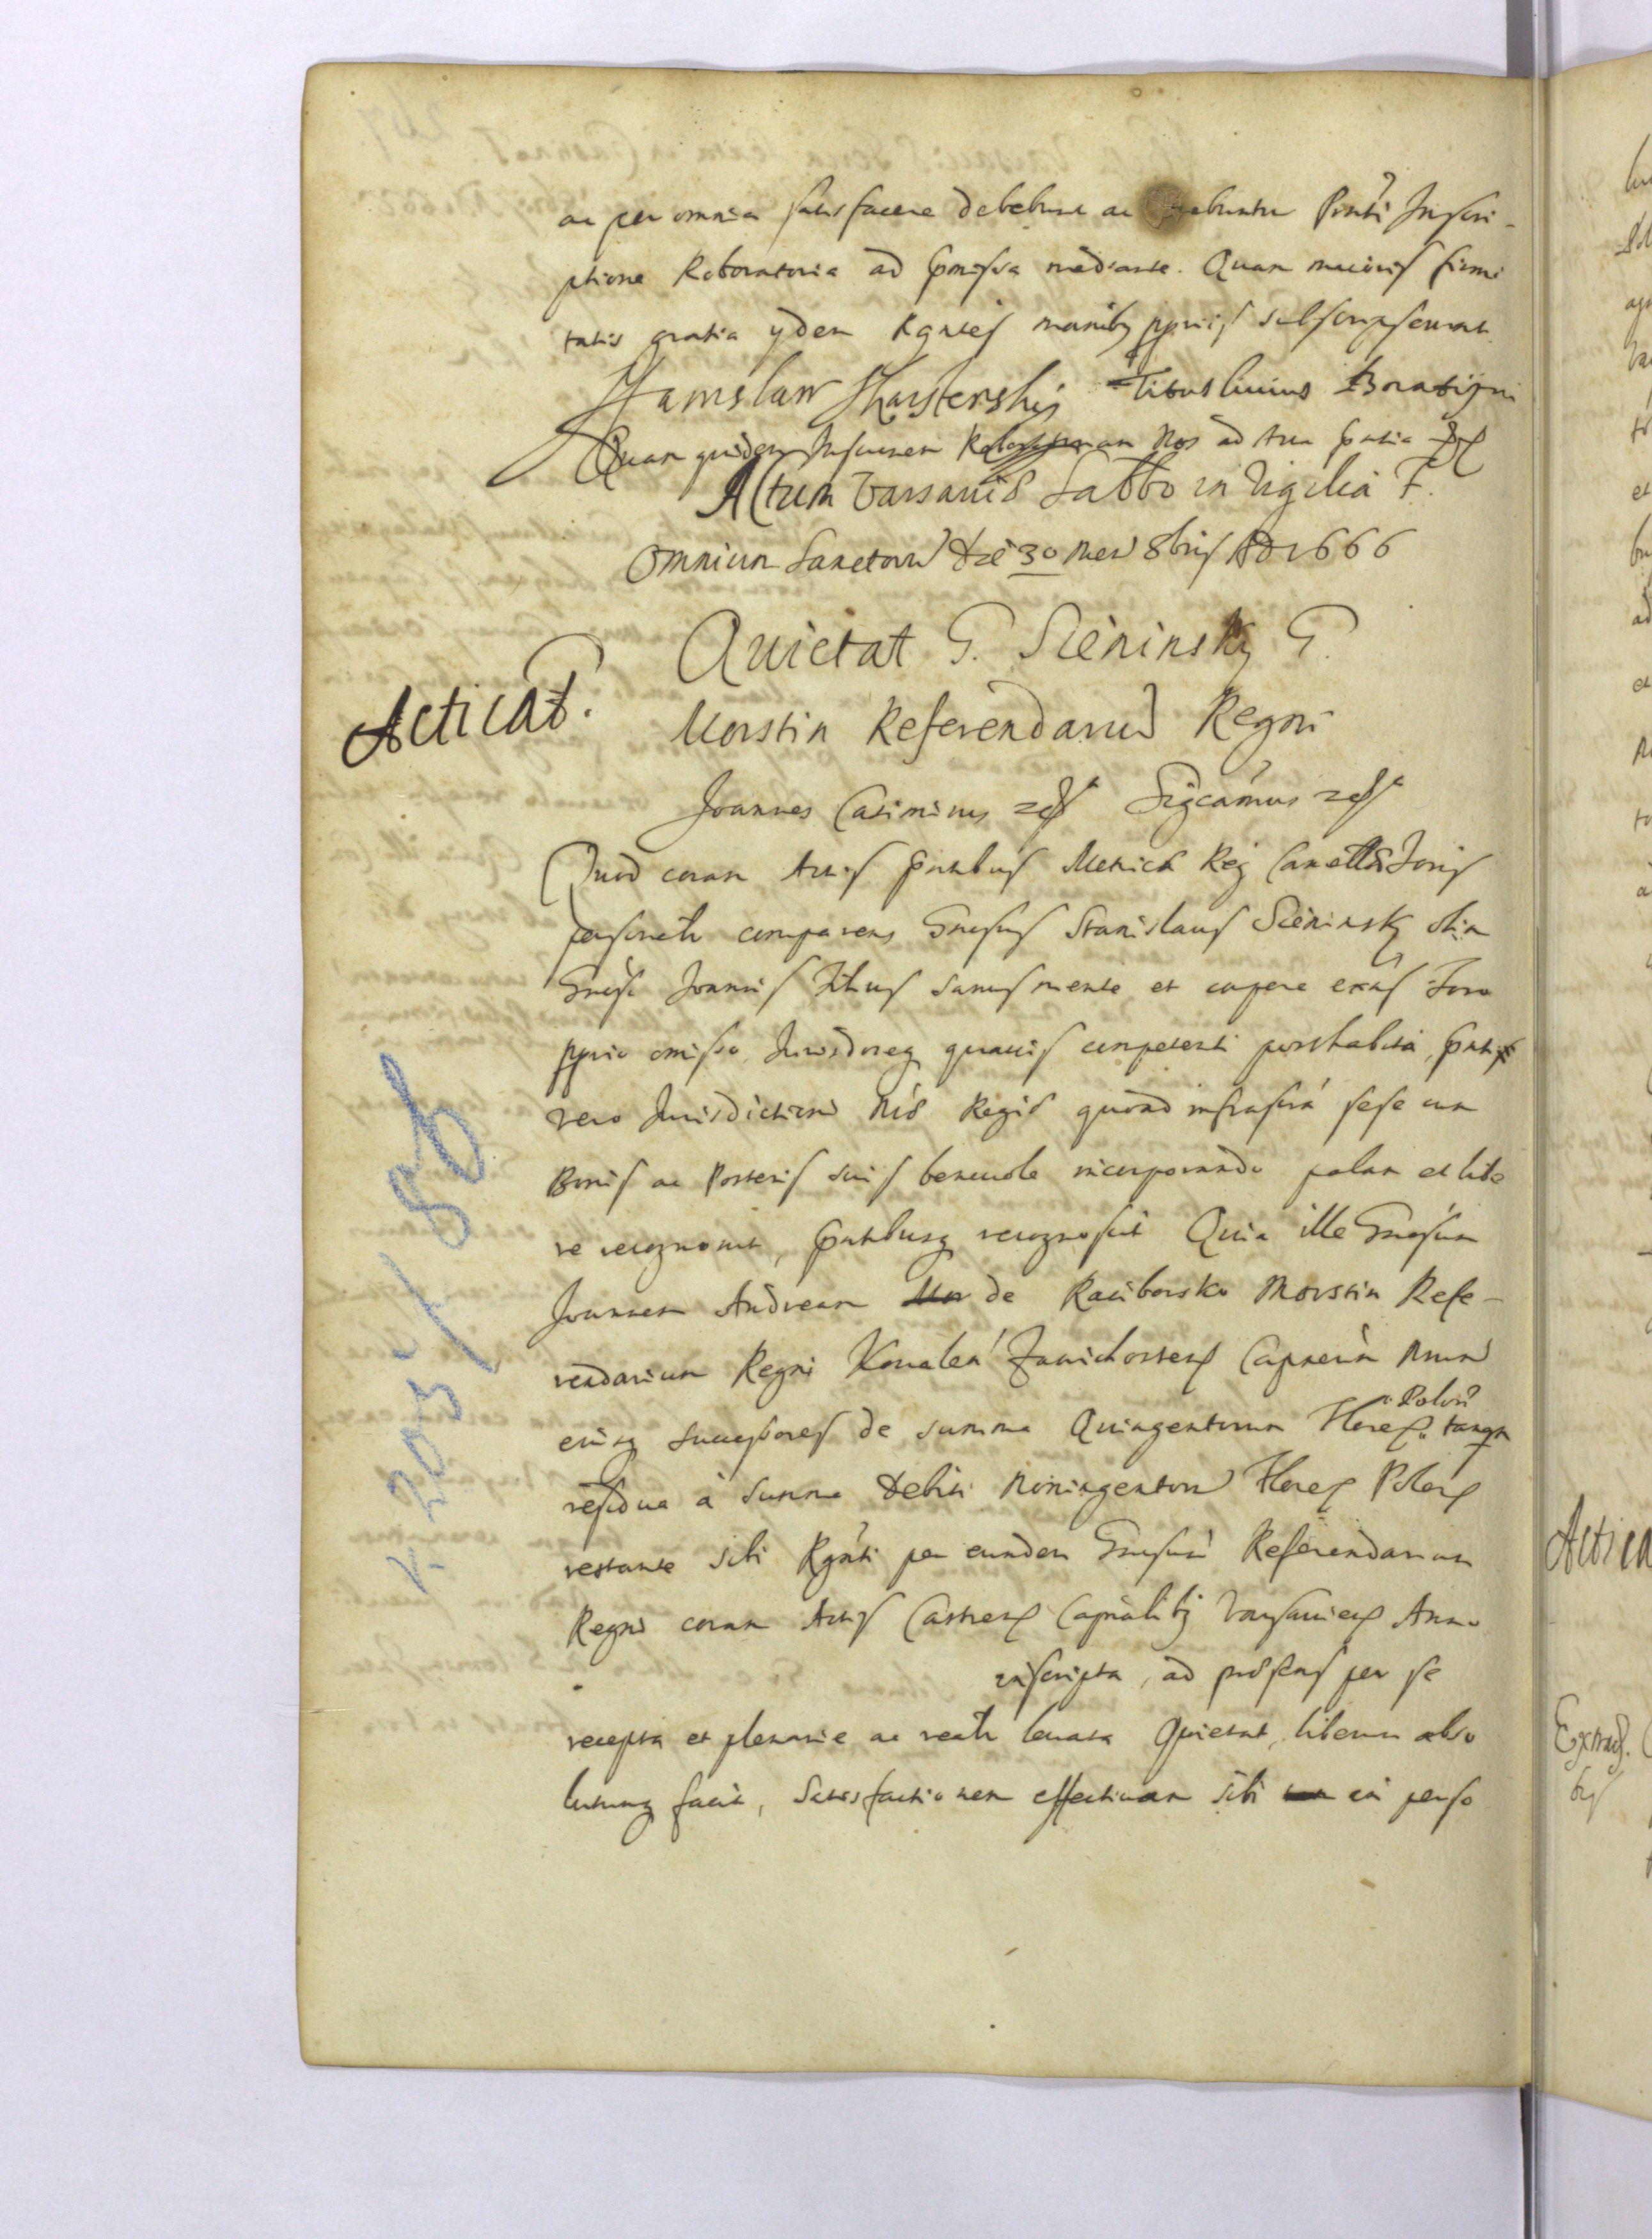 ac per omnia satisfacere debebunt ac buntur Pnti Inscri-
ptione Roboratoria ad pmissa mediante. Quam maioris firmi
tatis gratia ydem Rgntes manibq ppriis subscripserunt
Stanislaw Skarszewskij Titus Liuius Boratijni
Quam quidem Inscrnem Roboratoriam Nos ad Acta pntia
Actum Varsauiæ Sabbo in Vigilia F.
Omnium Sanctoru die 30 mens 8bris AD 1666
Quietat G. Sieninsky G.
Morstin Referendariu Regni
Acticat.
Joannes Casimirus Sigcamus
Quod coram Actis pntibus Metrices Reg Cancellæ
personalr comparens Gnosus Stanislaus Sieninsky olim
Gnosi Joannis filius sanus mente et corpore exns foro
pprio omisso, Jurisdoneq quauis competenti posthabita, pnti
vero Jurisdictioni Nræ Regiæ quoad infrascra sese cum
Bonis ac Posteris suis beneuole incorporando palam et libe
re recognouit, pntibusq recognoscit Quia ille Gnosum
Joannem Andream Mor de Raciborsko Morstin Refe-
rendarium Regni Kovalen Zawichosten Capneum Nrum
eiusq successores de summa Quingentorum Floren. Polon tanqm
residua a summa debiti Noningentoru Floren Polon
restante sibi Rgnti per eundem Gnosum Referendarium
Regni coram Actis Castren Capnalibq Varsauien Anno
inscripta, ad præsens per se
recepta et plenarie ac realr leuata Quietat, liberum abso
lutumq facit, Satisfactionem effectiuam sibi in perso
K 203 / 86
Actica
Extrad.